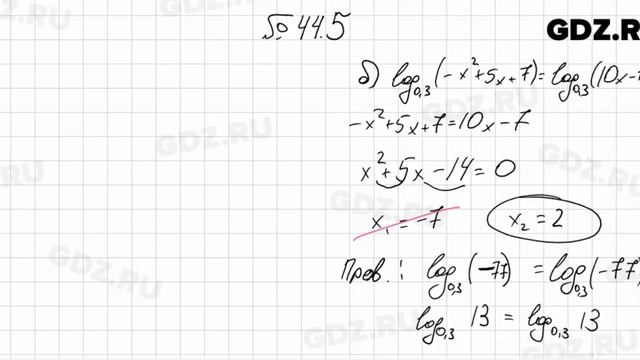 № 44.5
GDZ.R
б) log₀,₃(-x²+5x+7)=log₀,₃(10x-7
-x²+5x+7=10x-7
x²+5x-14=0
x₁=-7 x₂=2
Пров.: log₀,₃(-77) = log₀,₃(-77)
log₀,₃ 13 = log₀,₃ 13
GDZ.RU
GDZ.RU
GDZ.RU
GDZ.RU